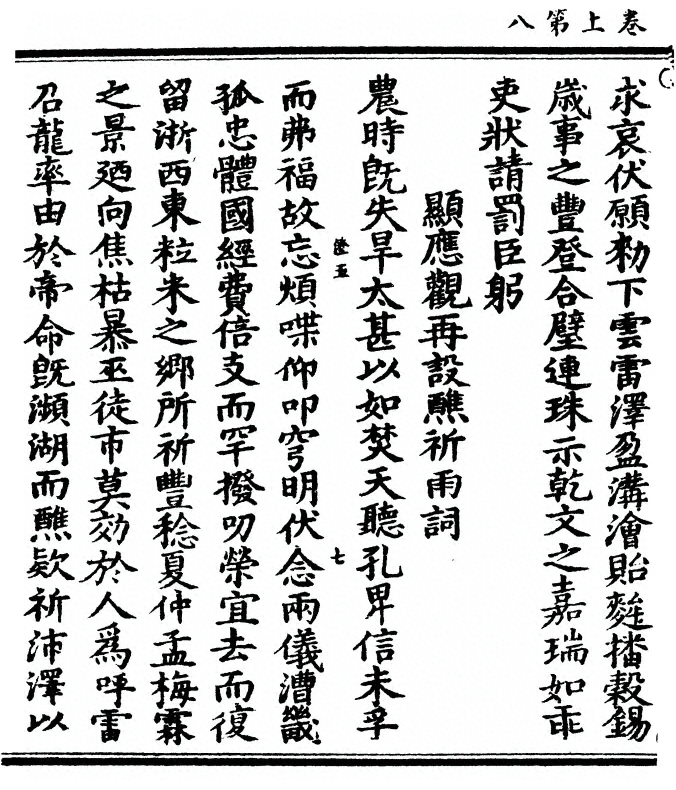 卷上第八
求哀伏願勑下雲雷澤盈溝澮貽麰播穀錫
歲事之豐登合璧連珠示乾文之嘉瑞如乖
吏狀請罰臣躬
顯應觀再設醮祈雨詞
農時旣失旱太甚以如焚天聽孔卑信未孚
而弗福故忘煩喋仰叩穹明伏念兩儀漕畿
孤忠體國經費倍支而罕撥叨榮宜去而復
留浙西東粒米之鄉所祈豐稔夏仲孟梅霖
之景廼向焦枯暴巫徒市莫効於人爲呼雷
召龍率由於帝命旣瀕湖而醮欵祈沛澤以
七